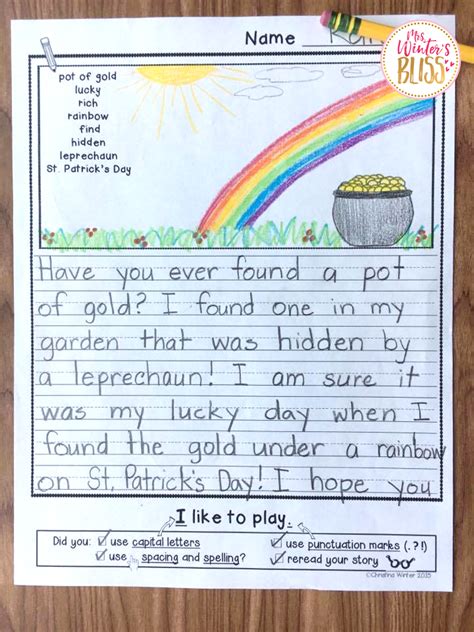 Name
Mrs.
Winter's
BLISS
pot of gold
lucky
rich
rainbow
find
hidden
leprechaun
St. Patrick's Day
Have you ever found a pot
of gold? I found one in my
garden that was hidden by
a leprechaun! I am sure it
was my lucky day when I
found the gold under a rainbow
on St. Patrick's Day! I hope you
I like to play.
Did you: use capital letters
use spacing and spelling?
use punctuation marks (. ? !)
reread your story
©Christina Winter 2015